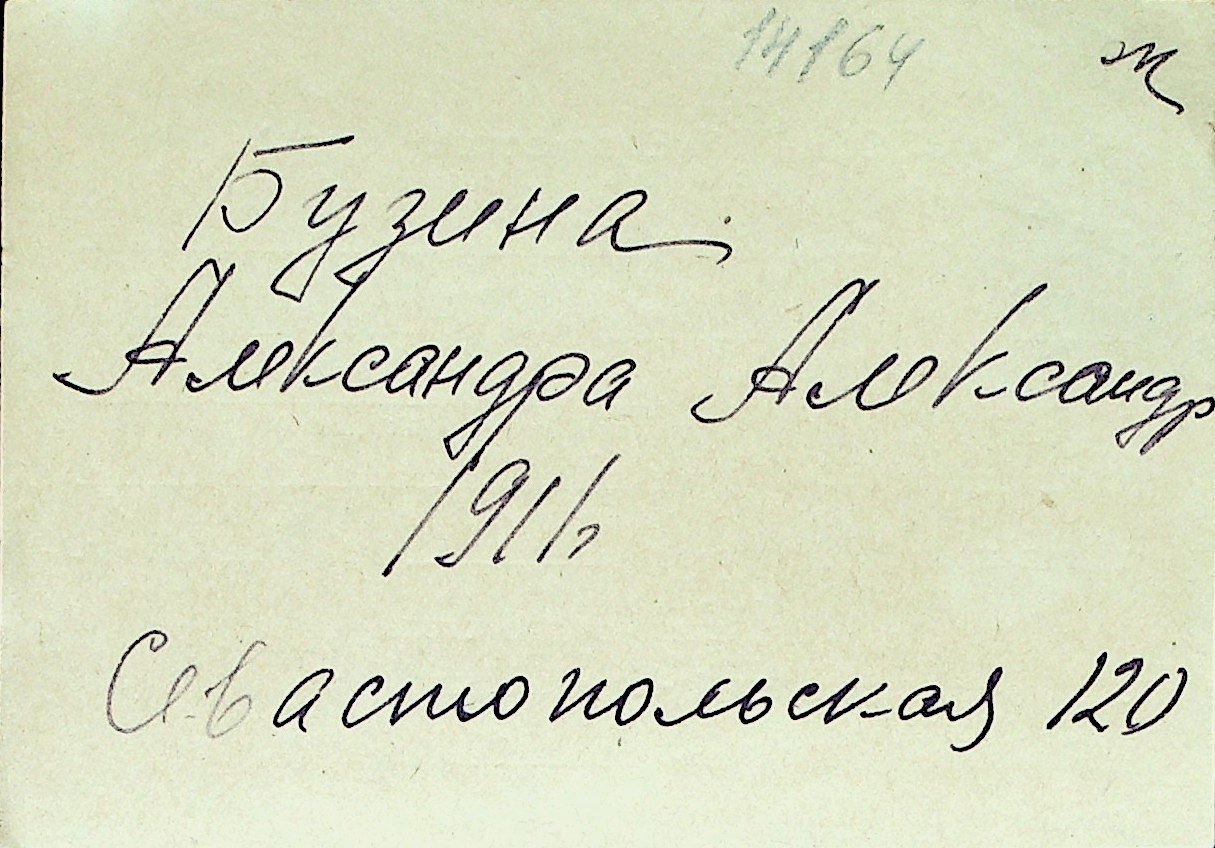 14164
ж
Бузина
Александра Александр
1911г
Севастопольская 120